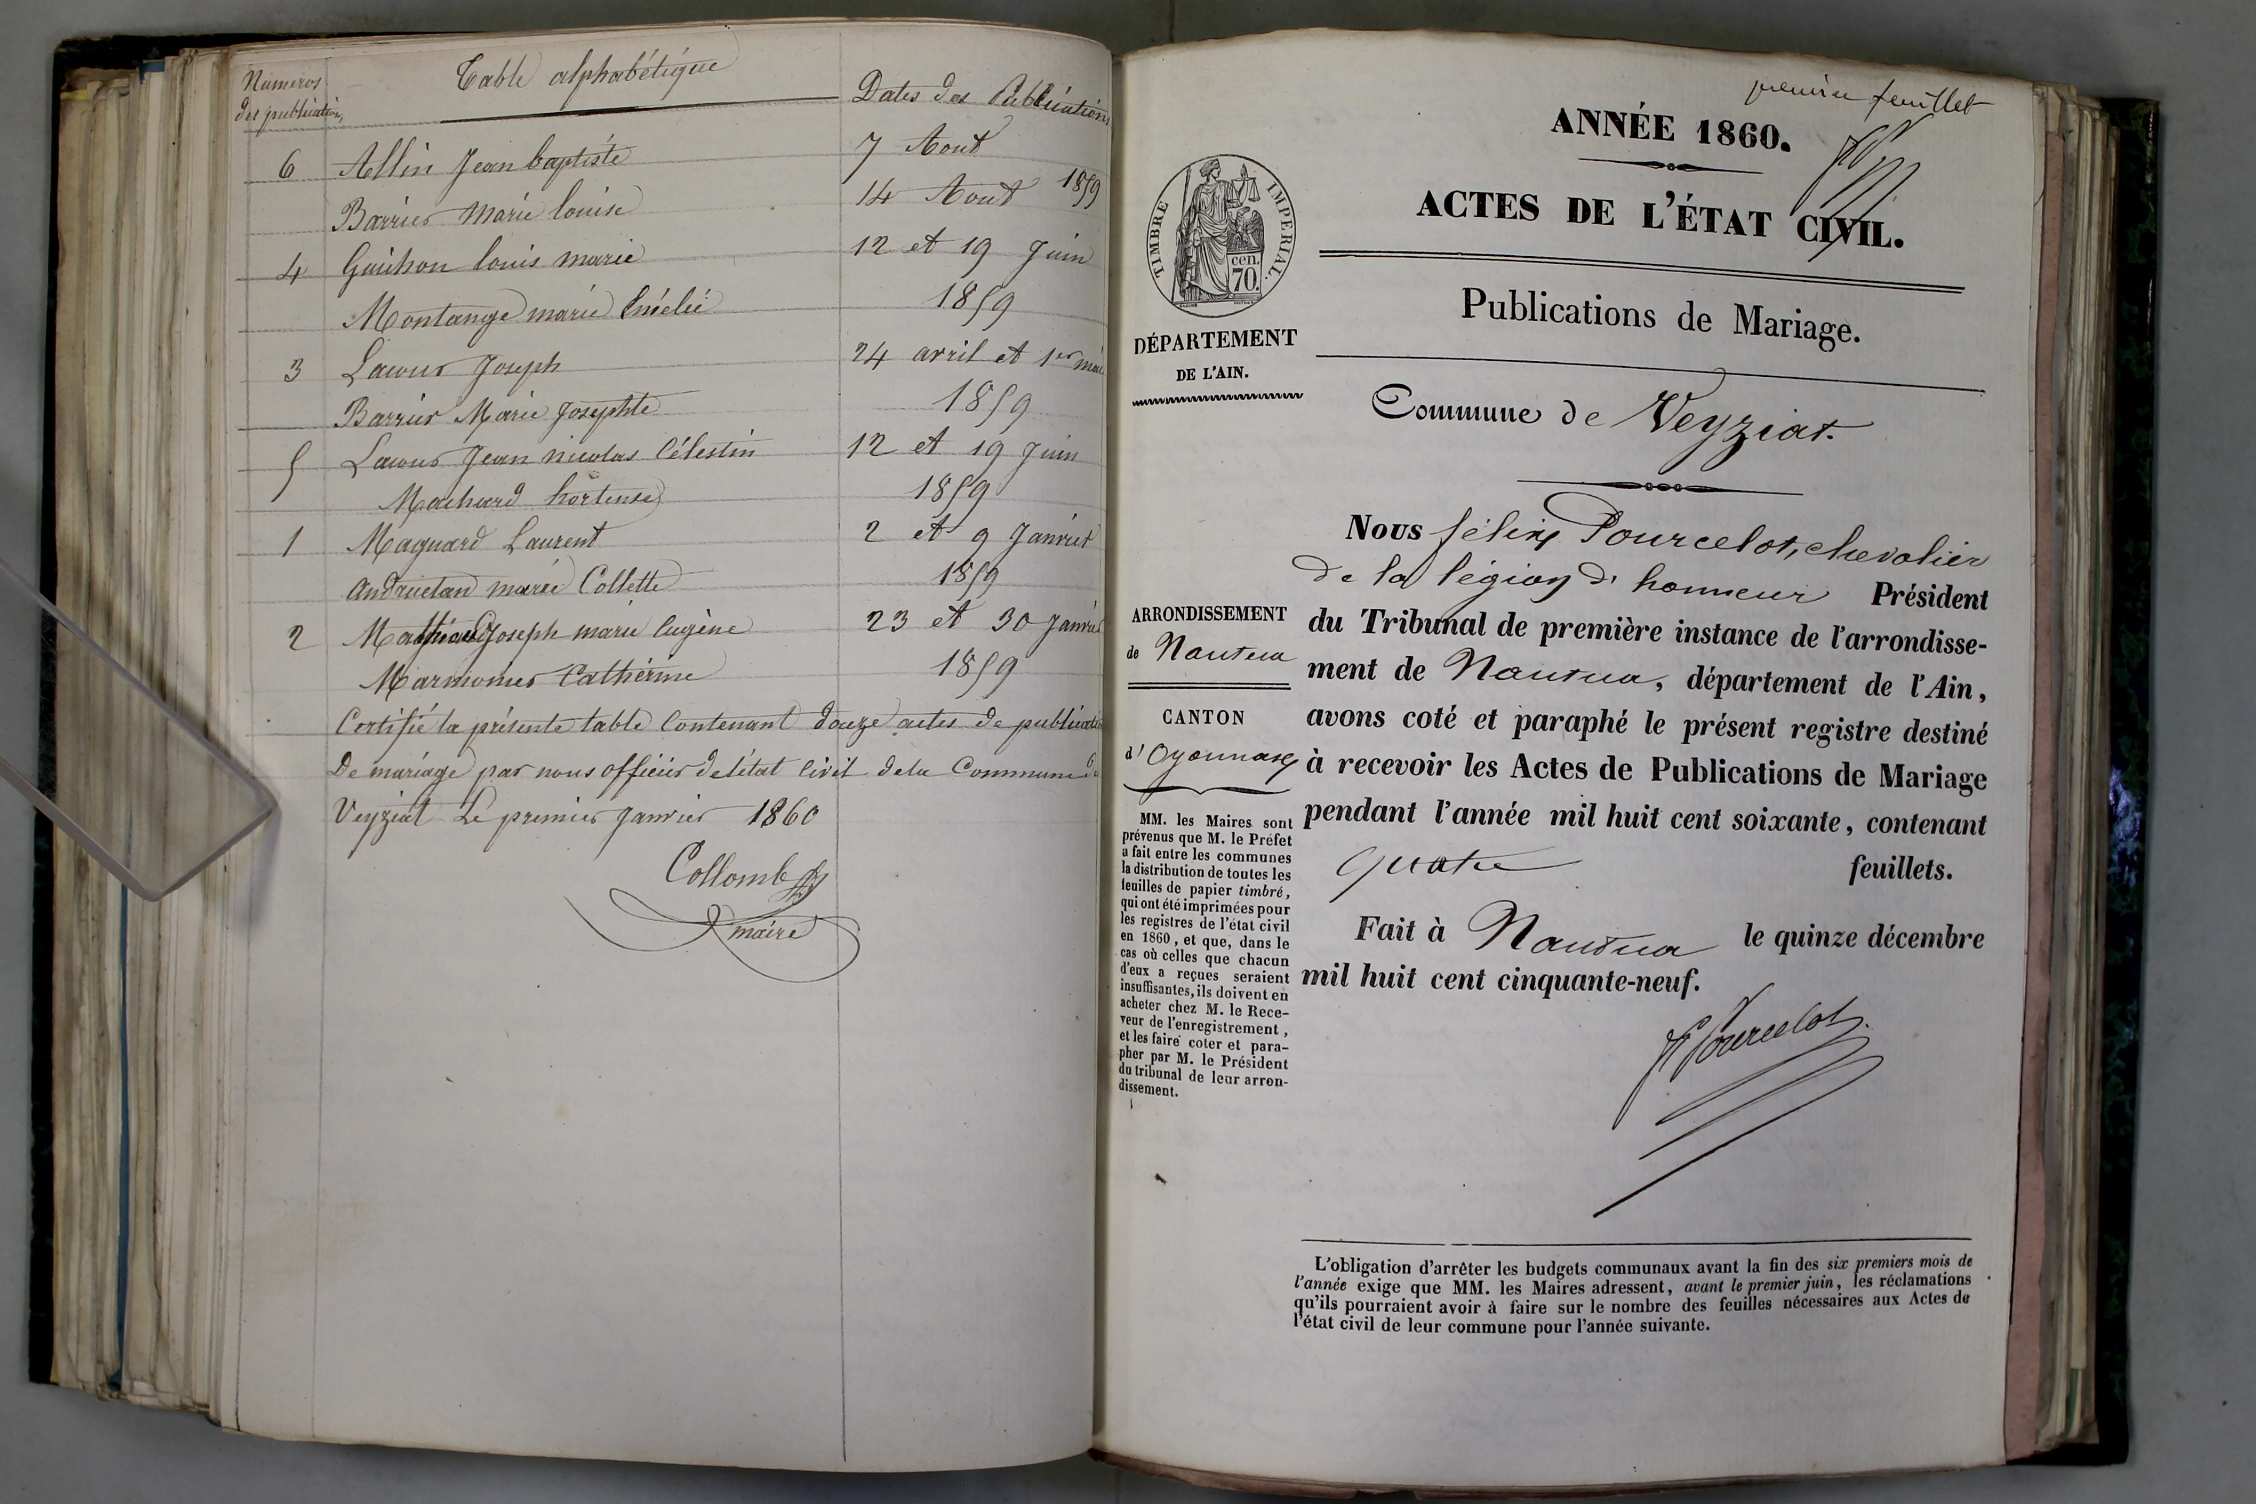 Numéros
des publications
Table alphabétique
Dates des Publications
6 Allin Jean baptiste 7 Aout
Barrier Marie louise 14 Aout 1859
4 louis marie 12 et 19 Juin
Montange marie 1859
3 Lacour Joseph 24 avril et 1er mai
Barrier Marie Josephte 1859
5 Lacour Jean nicolas Célestin 12 et 19 Juin
Machard hortense 1859
1 Maguard Laurent 2 et 9 Janvier
marie Collette 1859
2 Joseph marie Eugène 23 et 30 Janvier
Marmonier Catherine 1859
Certifié la présente table Contenant douze actes de publication
De mariage par nous officier de létat Civil dela Commune de
Veyziat Le premier Janvier 1860
Collomb
maire
premier feuillet
ANNÉE 1860.
ACTES DE L'ÉTAT CIVIL.
TIMBRE IMPERIAL.
cen.
70.
Publications de Mariage.
DÉPARTEMENT
DE L'AIN.
Commune de Veyziat.
Nous félix Pourcelot, chevalier
de la légion d'honneur Président
du Tribunal de première instance de l'arrondisse-
ment de Nantua, département de l'Ain,
avons coté et paraphé le présent registre destiné
à recevoir les Actes de Publications de Mariage
pendant l'année mil huit cent soixante, contenant
quatre feuillets.
Fait à Nantua le quinze décembre
mil huit cent cinquante-neuf.
F Pourcelot
ARRONDISSEMENT
de Nantua
CANTON
d'Oyonnax
MM. les Maires sont
prévenus que M. le Préfet
a fait entre les communes
la distribution de toutes les
feuilles de papier timbré,
qui ont été imprimées pour
les registres de l'état civil
en 1860, et que, dans le
cas où celles que chacun
d'eux a reçues seraient
insuffisantes, ils doivent en
acheter chez M. le Rece-
veur de l'enregistrement,
et les faire coter et para-
pher par M. le Président
du tribunal de leur arron-
dissement.
L'obligation d'arrêter les budgets communaux avant la fin des six premiers mois de
l'année exige que MM. les Maires adressent, avant le premier juin, les réclamations
qu'ils pourraient avoir à faire sur le nombre des feuilles nécessaires aux Actes de
l'état civil de leur commune pour l'année suivante.